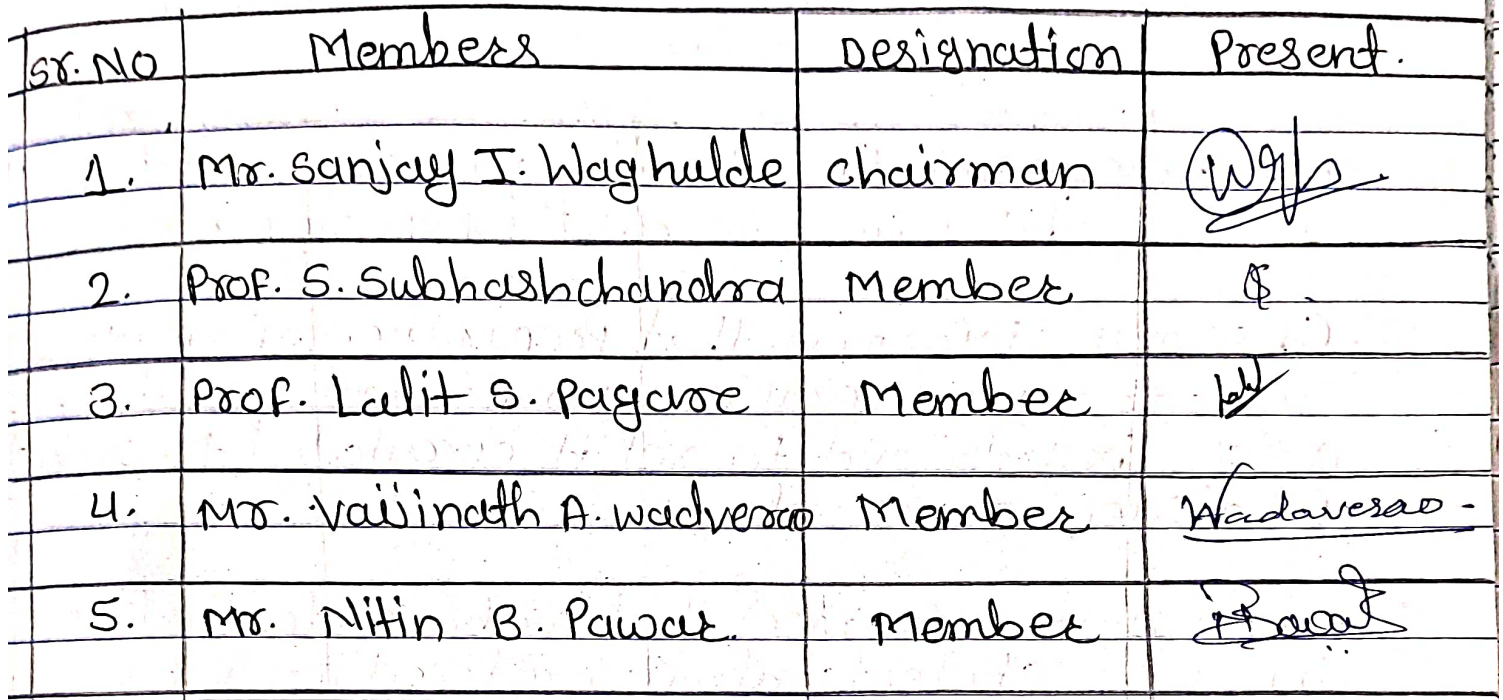 Sr. NO Members Designation Present.
1. Mr. Sanjay I. Waghulde Chairman
2. Prof. S. Subhashchandra Member
3. Prof. Lalit S. Pagare Member
4. Mr. Vaijinath A. Wadverao Member Wadaverao
5. Mr. Nitin B. Pawar. Member